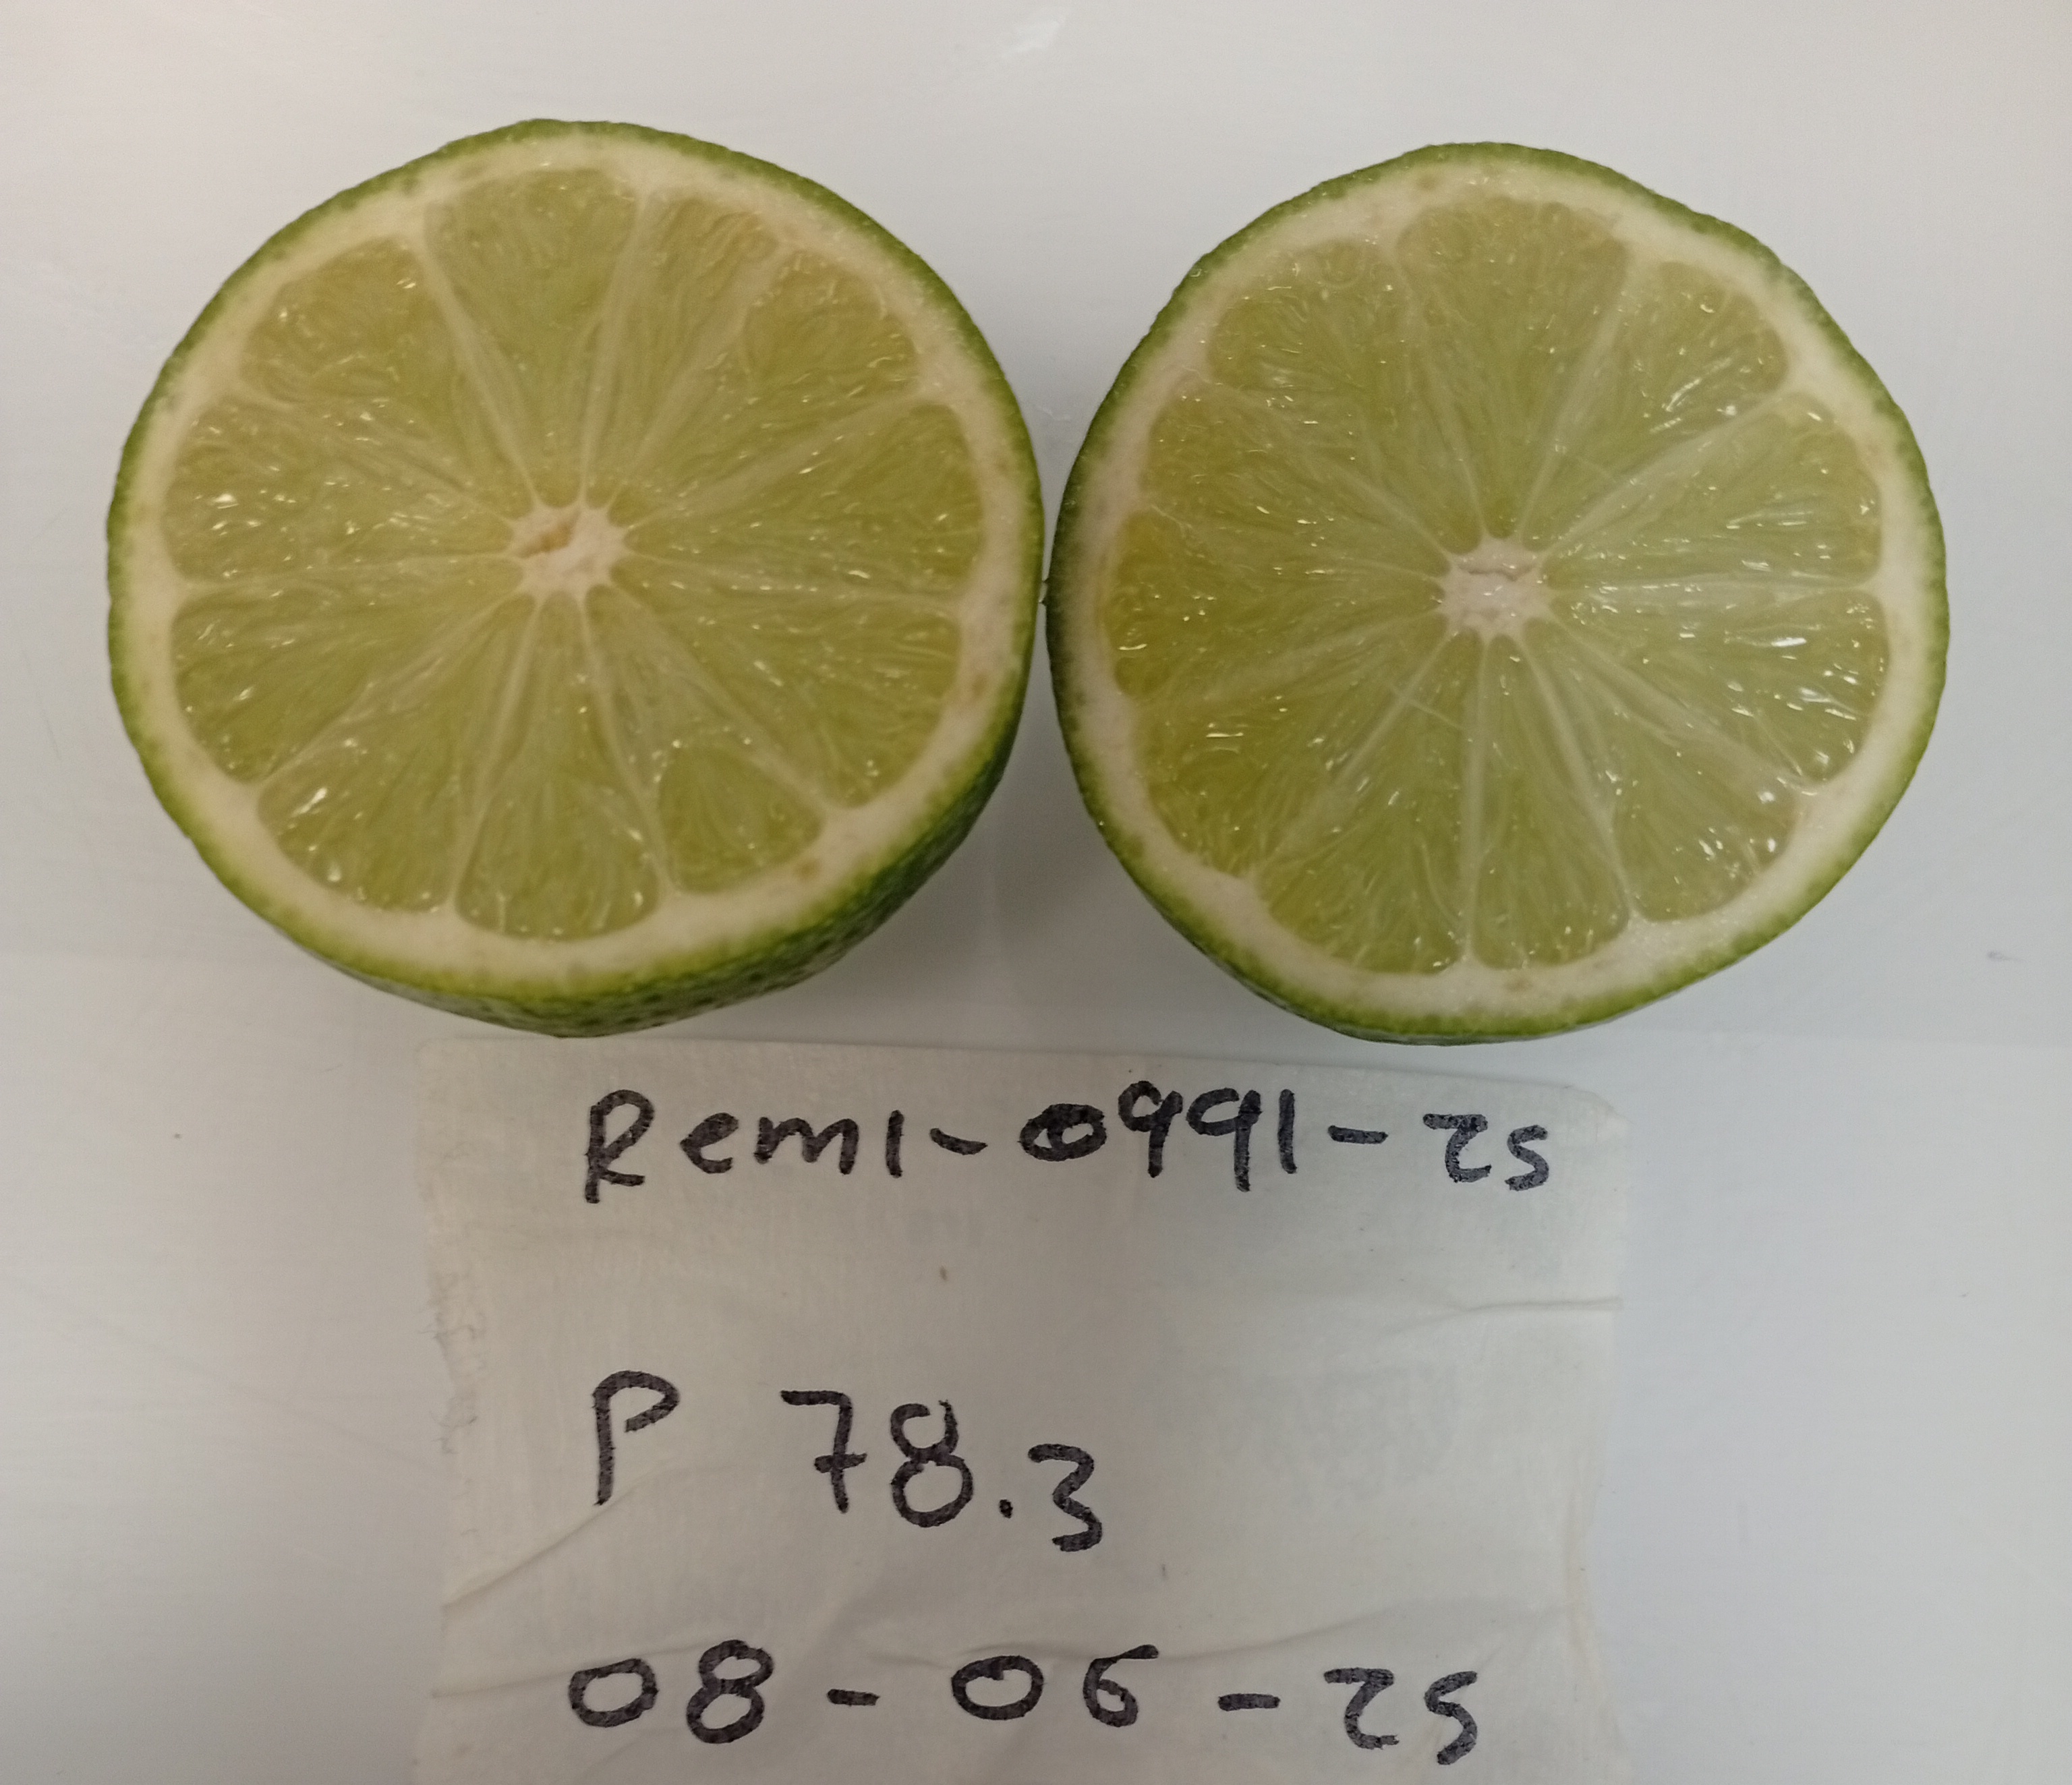 Rem1-0991-25
P 78.3
08-06-25